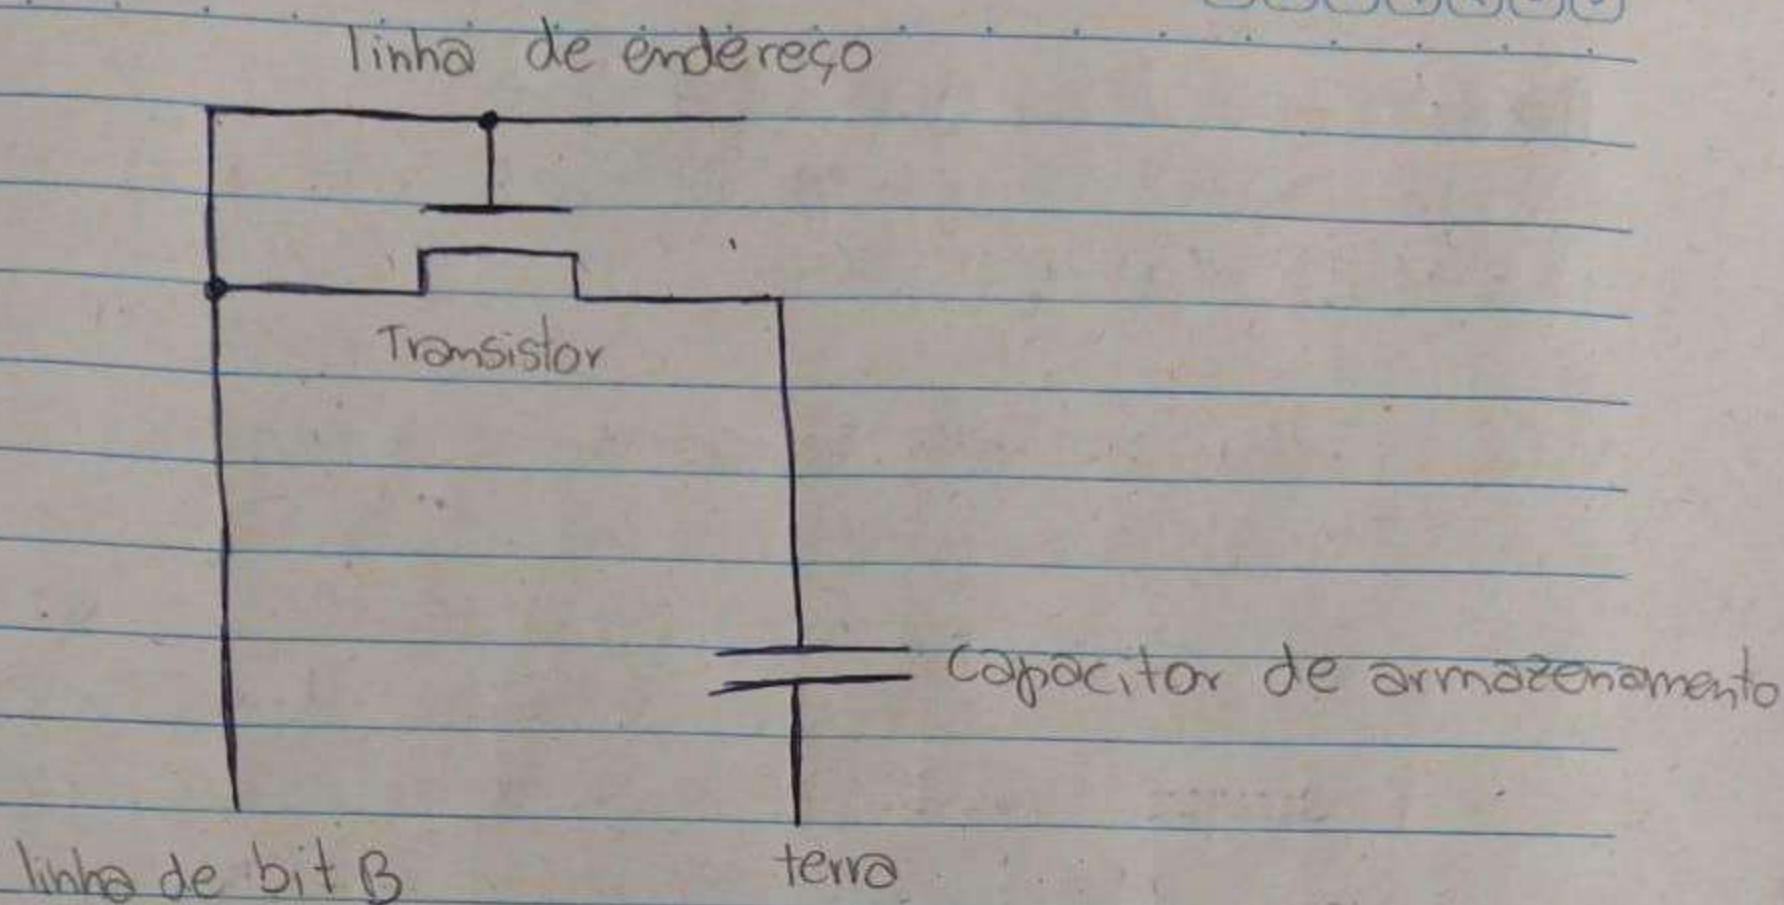 linha de endereço
Transistor
Capacitor de armazenamento
linha de bit B
terra